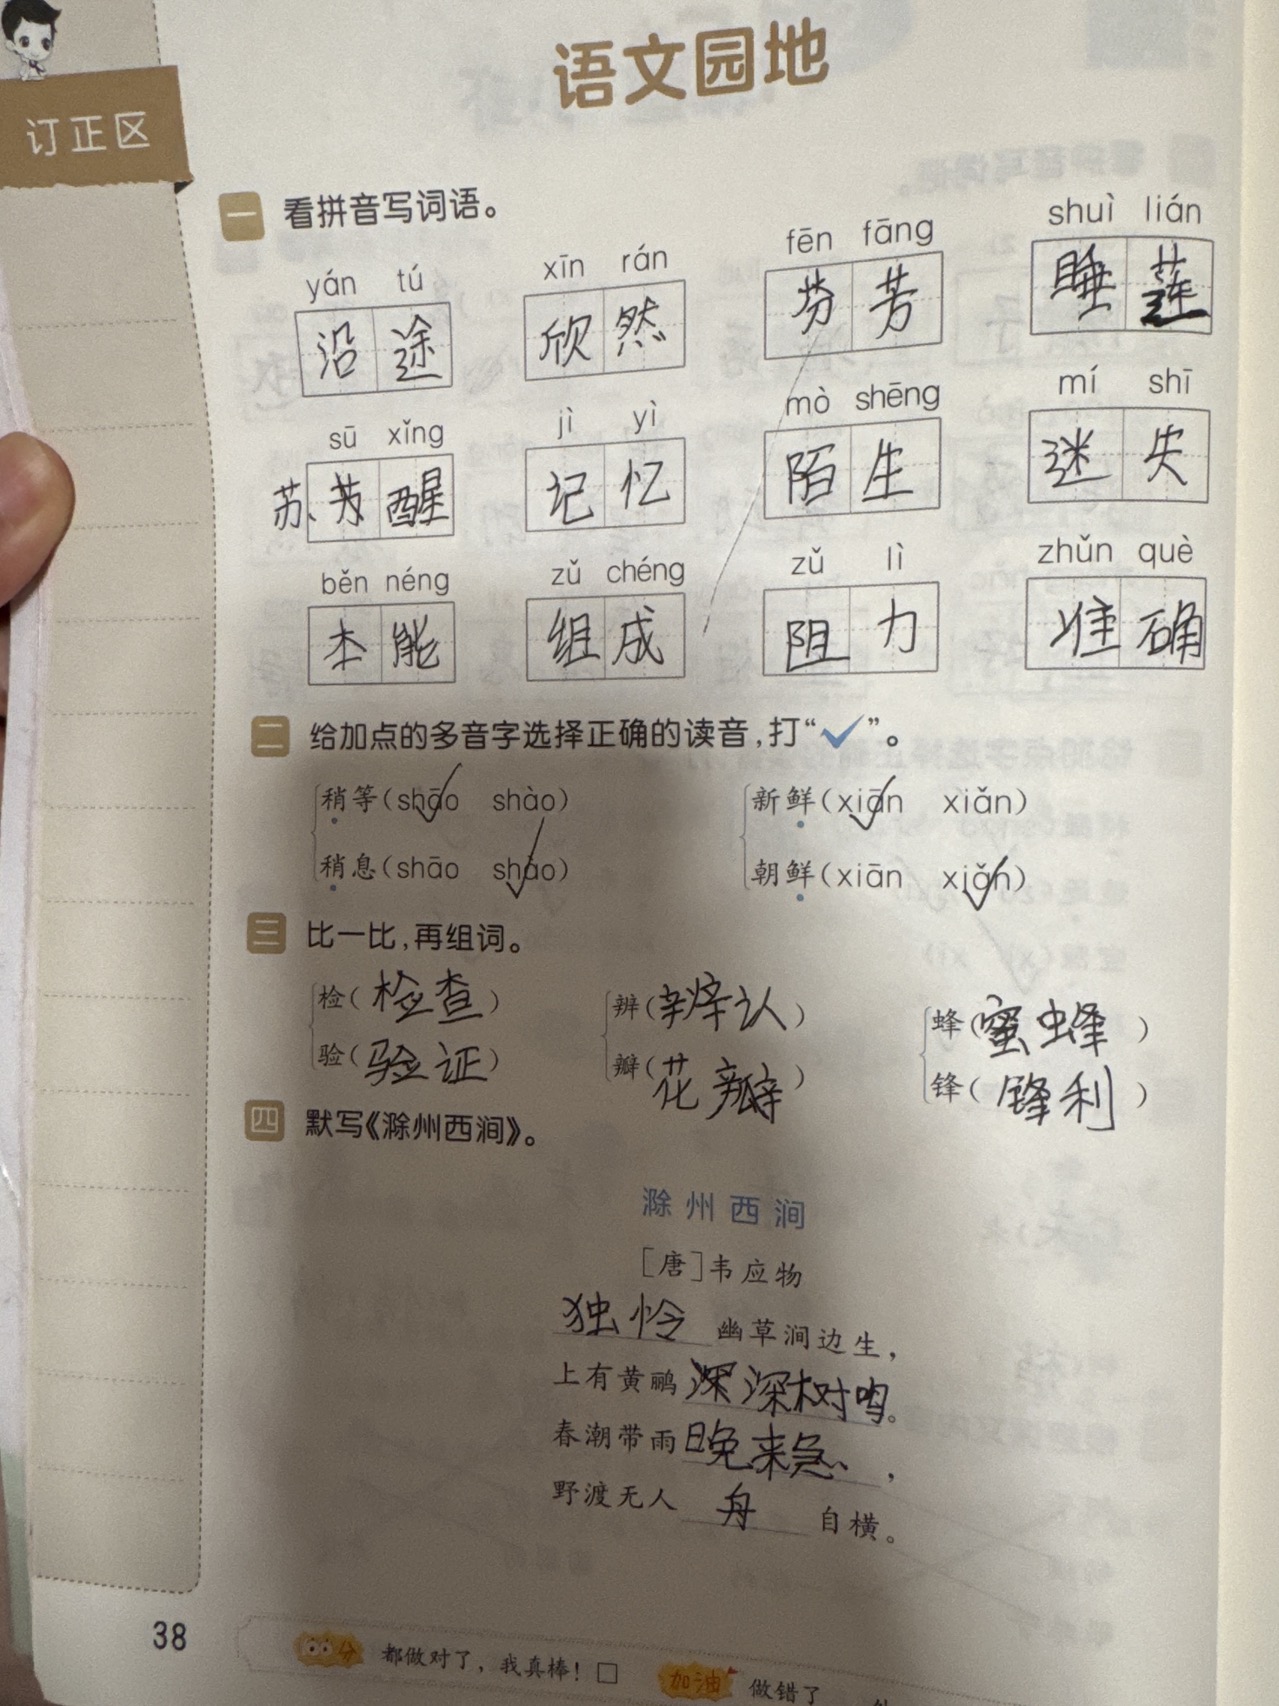 语文园地
订正区
一 看拼音写词语。
yán tú xīn rán fēn fāng shuì lián
沿途 欣然 芬芳 睡莲
sū xǐng jì yì mò shēng mí shī
苏 苏醒 记忆 陌生 迷失
běn néng zǔ chéng zǔ lì zhǔn què
本能 组成 阻力 准确
二 给加点的多音字选择正确的读音，打“✓”。
稍等(shāo✓ shào) 新鲜(xiān✓ xiǎn)
稍息(shāo shào✓) 朝鲜(xiān xiǎn✓)
三 比一比，再组词。
检(检查) 辨(辨认) 蜂(蜜蜂)
验(验证) 瓣(花瓣) 锋(锋利)
四 默写《滁州西涧》。
滁州西涧
[唐]韦应物
独怜幽草涧边生，
上有黄鹂深深树鸣。
春潮带雨晚来急，
野渡无人舟自横。
38
分 都做对了，我真棒！□ 加油 做错了